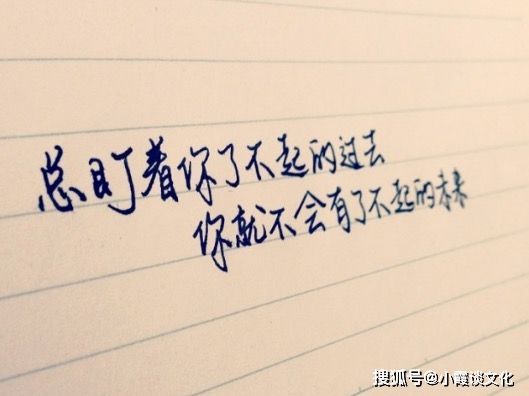 总盯着你了不起的过去
你就不会有了不起的未来
搜狐号@小霞谈文化